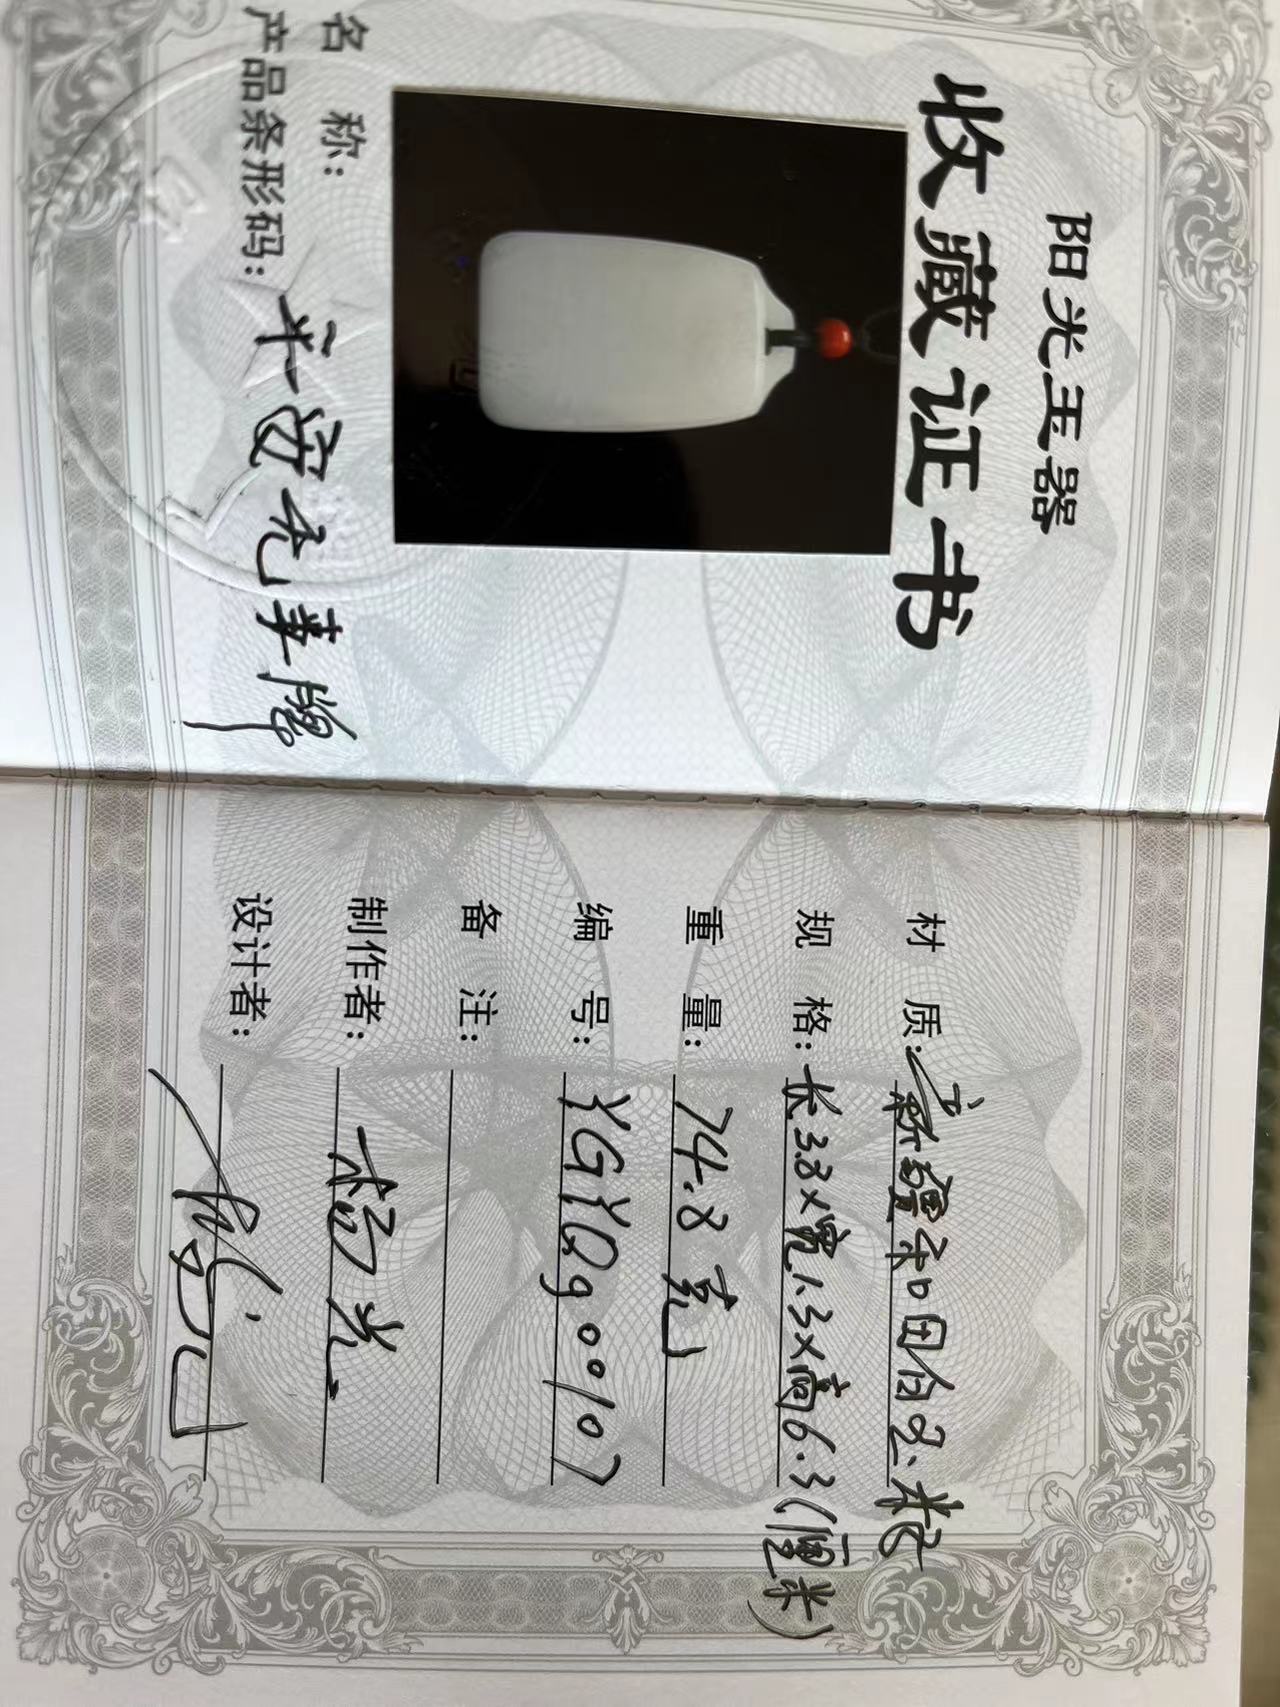 阳光玉器
收藏证书
名 称:
产品条形码: 平安无事牌
材 质: 新疆和田白玉籽
规 格: 长3.8×宽1.3×高6.3(厘米)
重 量: 74.8克
编 号: YGYQ900107
备 注:
制作者: 杨光
设计者: